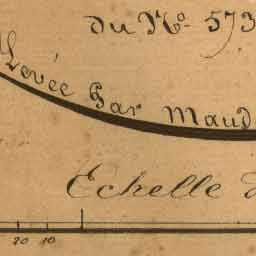 du No. 573
Levée Par Maud
Echelle
20 10